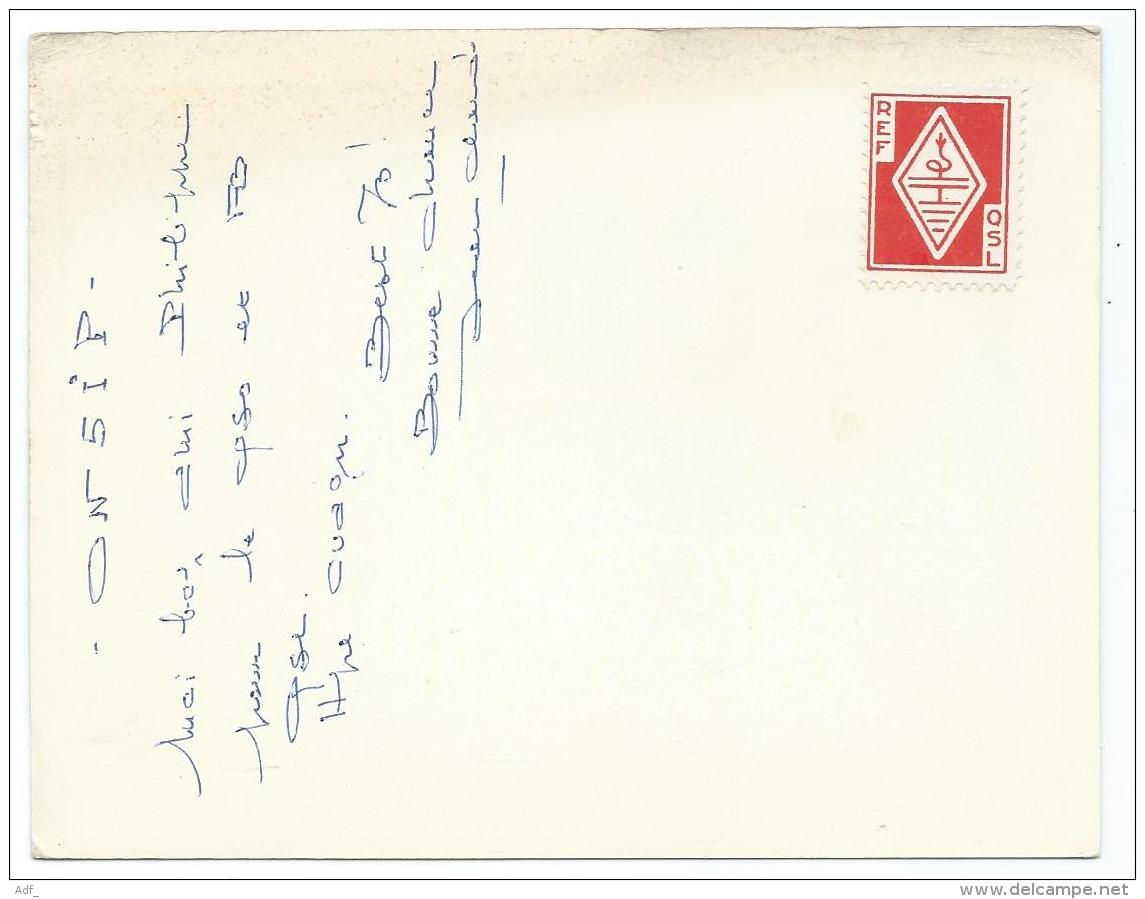 - ON5IP -
Merci bcp, ami Philippe
pour le QSO et FB
QSL.
Hpe cuagn.
Best 73!
Bonne chance
REF
QSL
Adf_
www.delcampe.net